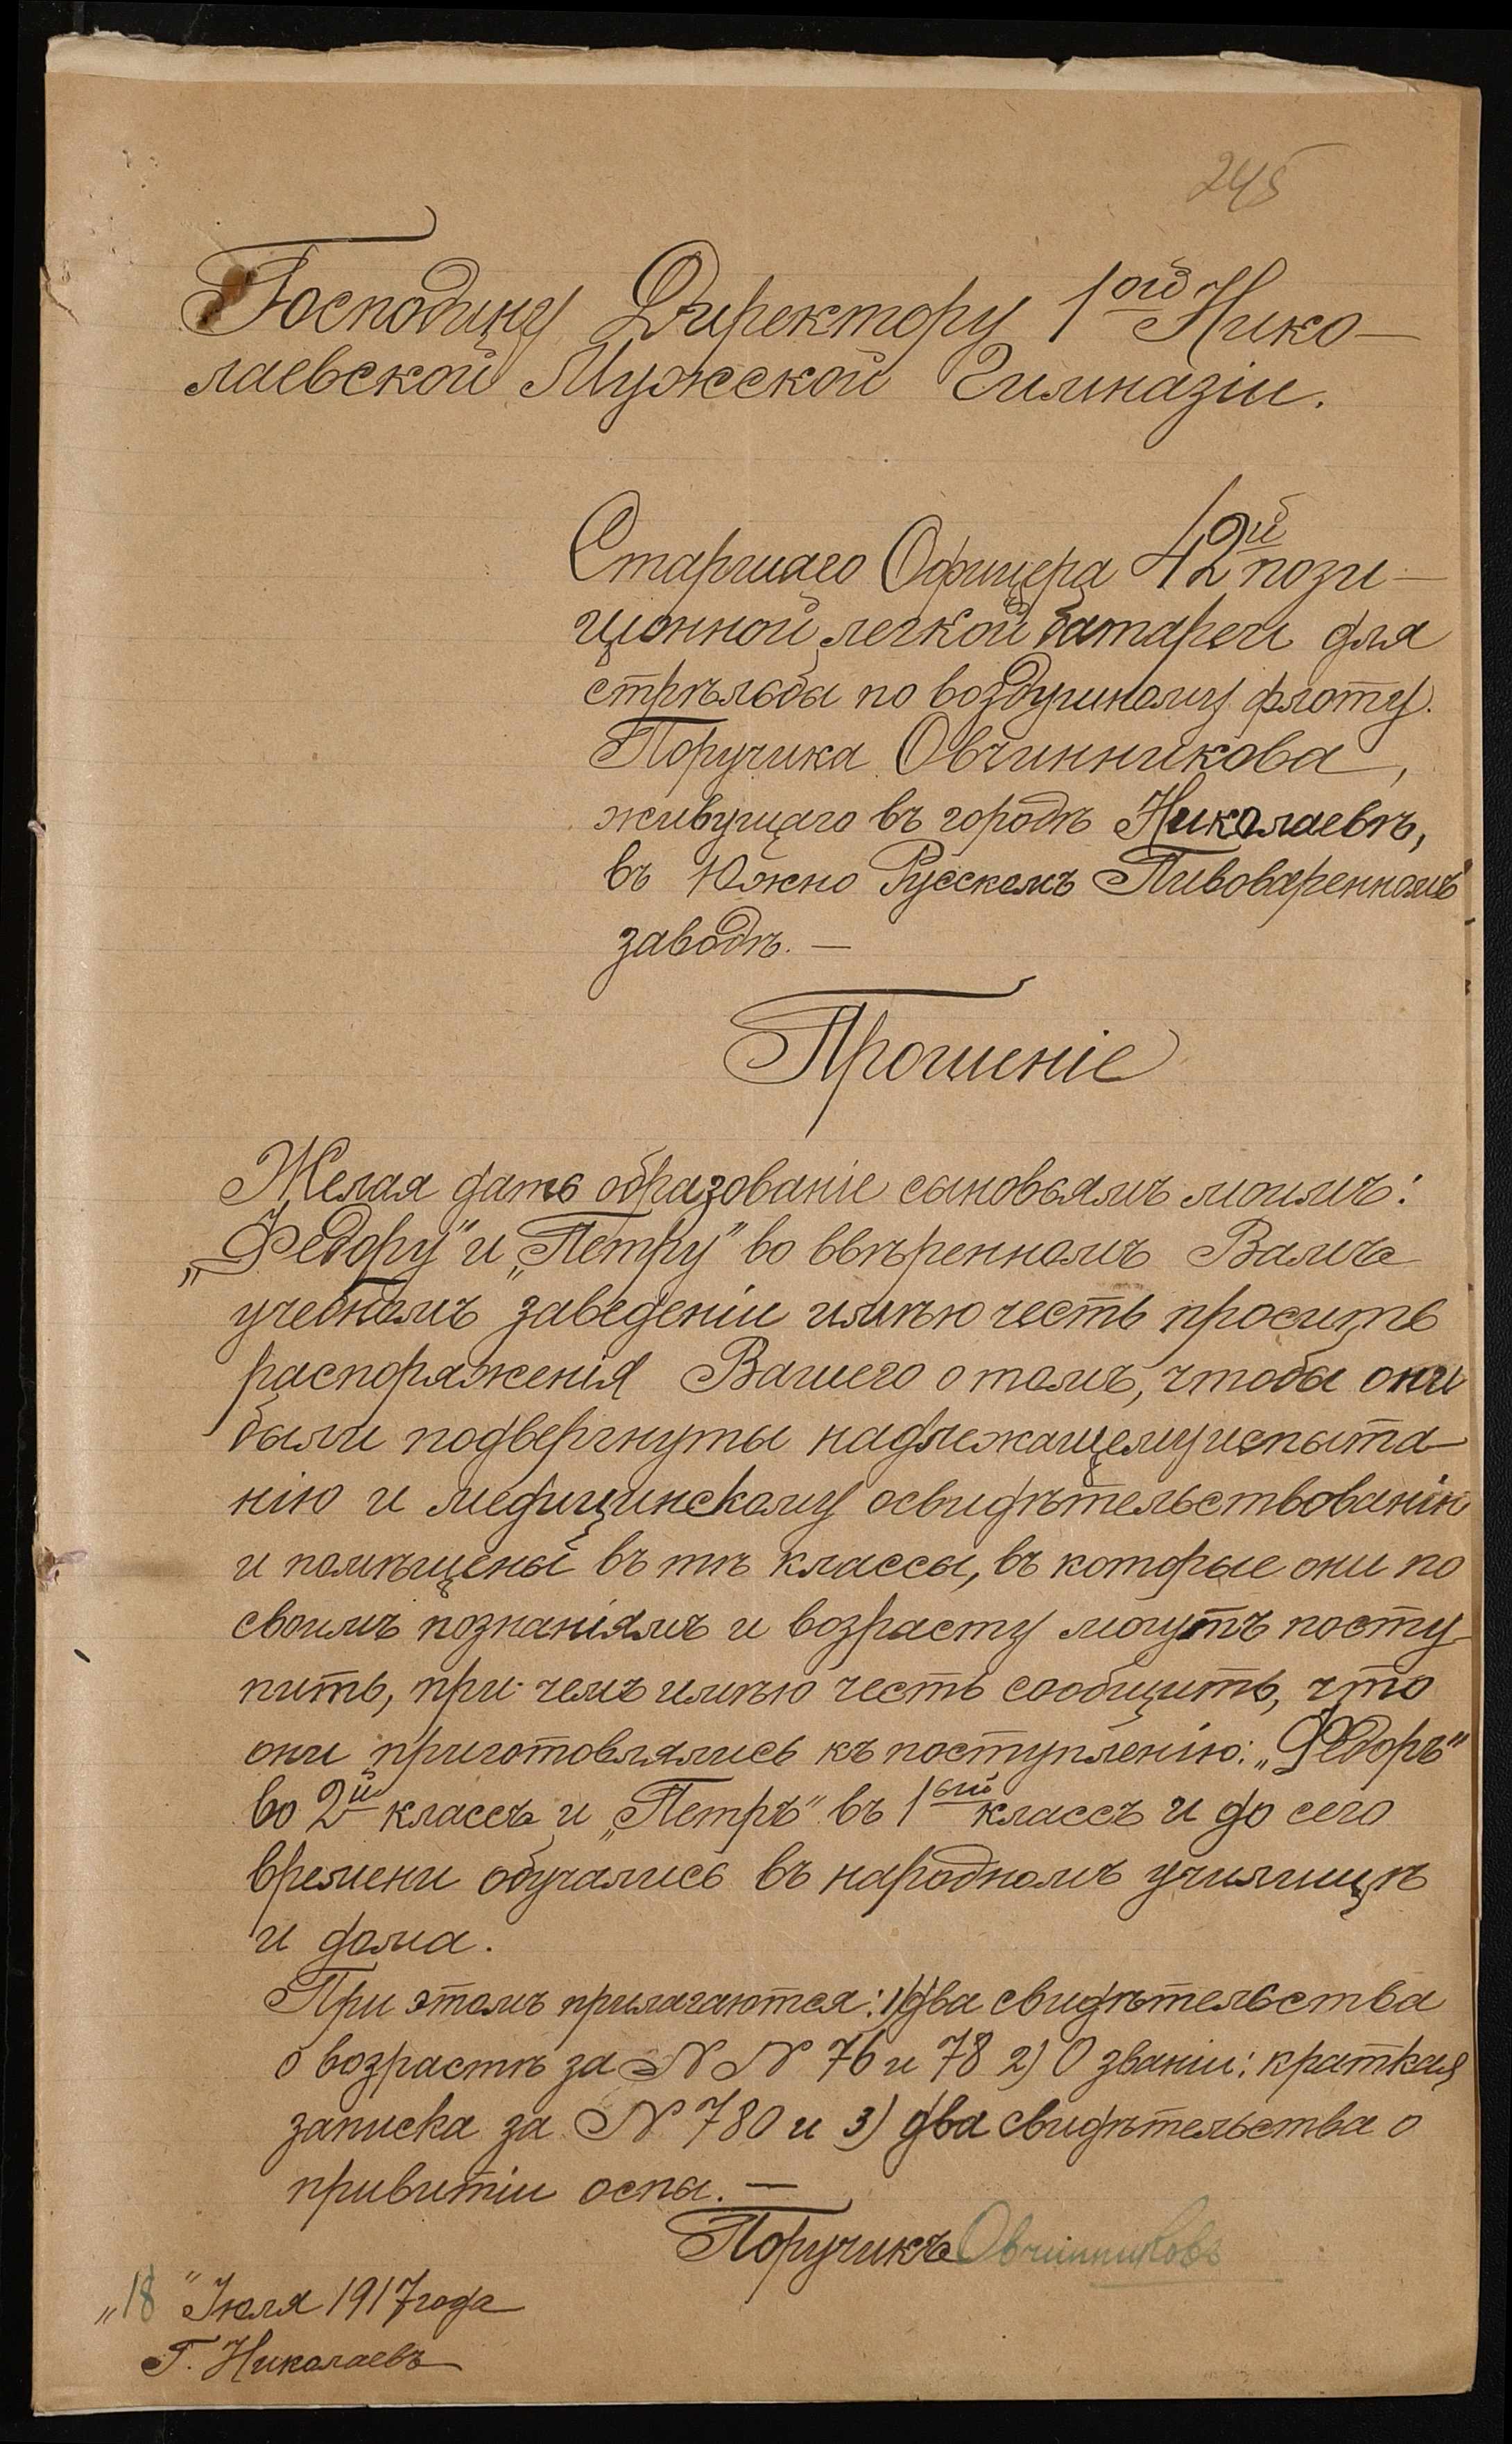 245
Господину Директору 1ой Нико-
лаевской Мужской Гимназіи.
Старшаго Офицера 42й пози-
ціонной легкой батареи для
стрѣльбы по воздушному флоту.
Поручика Овчинникова,
живущаго въ городѣ Николаевѣ,
въ Южно Русскомъ Пивоваренномъ
заводѣ. —
Прошеніе
Желая дать образованіе сыновьямъ моимъ:
„Федору" и „Петру" во ввѣренномъ Вамъ
учебномъ заведеніи имѣю честь просить
распоряженія Вашего о томъ, чтобы они
были подвергнуты надлежащему испыта-
нію и медицинскому освидѣтельствованію
и помѣщены въ тѣ классы, въ которые они по
своимъ познаніямъ и возрасту могутъ посту-
пить, при чемъ имѣю честь сообщить, что
они приготовлялись къ поступленію: „Федоръ"
во 2й классъ и „Петръ" въ 1ый классъ и до сего
времени обучались въ народномъ училищѣ
и дома.
При этомъ прилагаются: 1) два свидѣтельства
о возрастѣ за N N 76 и 78 2) О званіи: краткая
записка за N 780 и 3) два свидѣтельства о
привитіи оспы. —
Поручикъ Овчинниковъ
„18" Іюля 1917 года
Г. Николаевъ